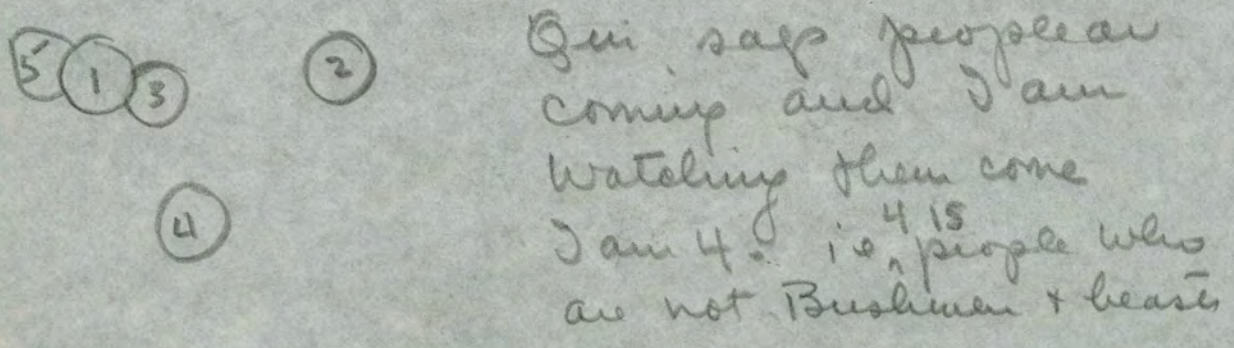 5 1 3 2
4
Qui says people are
coming and I am
watching them come
I am 4. i.e. 4 is people who
are not Bushmen + beasts